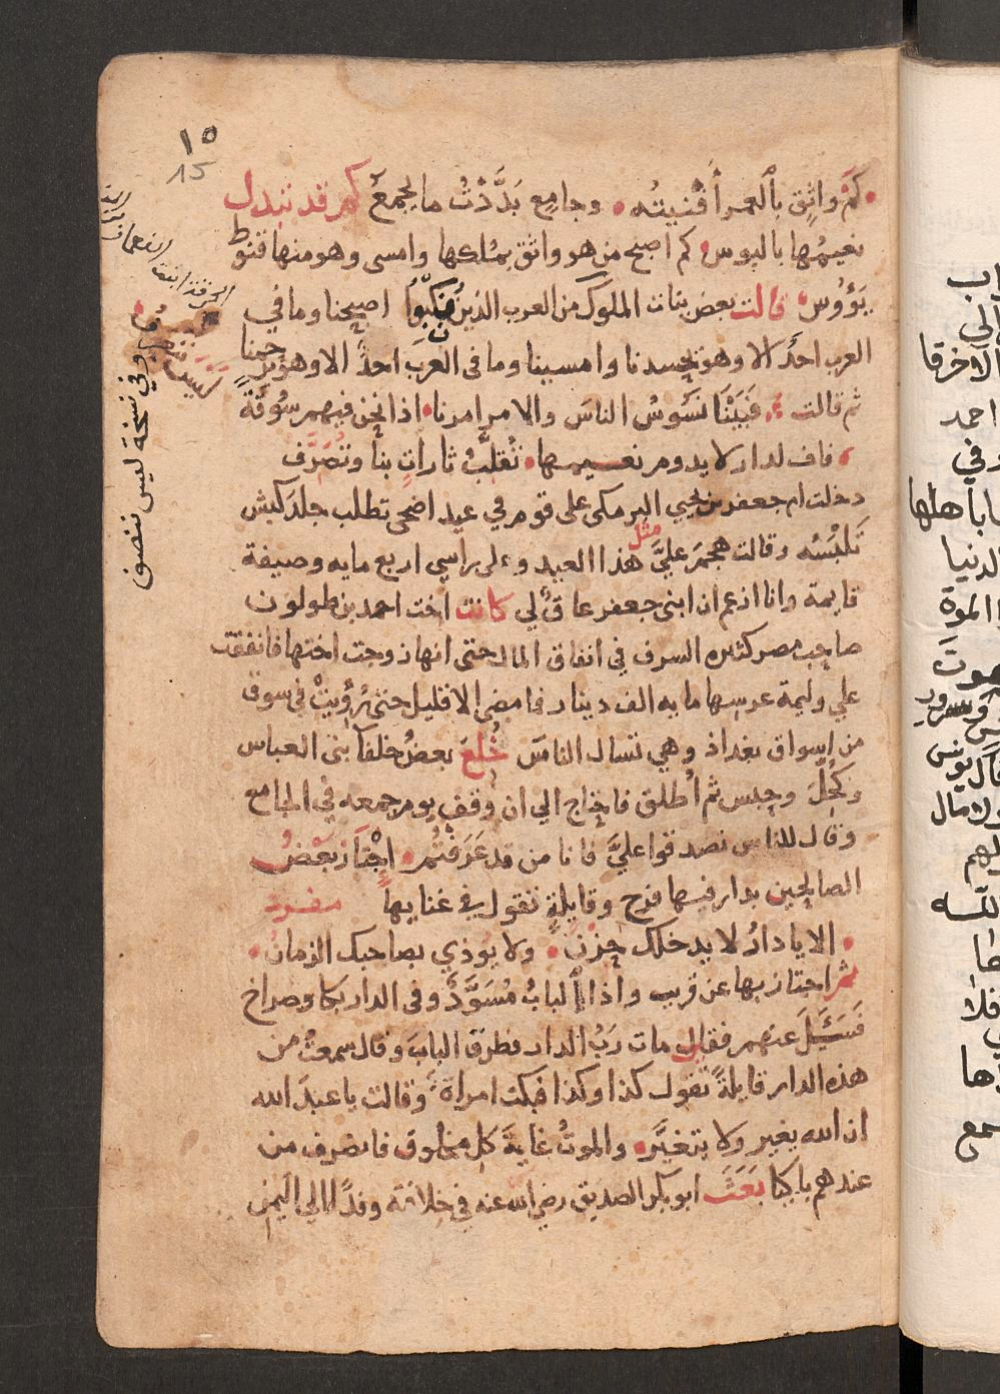 ١٥
15
كم واثق بالعمر أفنيته وجامع بَدَّدْتُ ما يجمع كم قد تبدل
نعيمُها بالبوس كم اصبح من هو واثق بملكها وامسى وهو منها قنوط
يَؤُوس قالت بعض بنات الملوك من العرب الذين نُكِبُوا اصبحنا وما في
العرب احدٌ الا وهو يحسدنا وامسينا وما فى العرب احدٌ الا وهو يرحمنا
ثم قالت فَبَيْنَا نَسُوسُ الناسَ والامر امرنا اذا نحن فيهم سُوقَة
فاف لدار لا يدوم نعيمها تُقلَّبُ ثارات بنا وتُصَرَّف
دخلت ام جعفر بن يحيي البرمكى على قوم في عيد اضحى تطلب جلد كبش
تَلْبَسُه وقالت هجم عليَّ مثل هذا العيد وعلى راسي اربع مايه وصيفة
قايمة وانا ازعم ان ابنى جعفر عاقٌ لي كانت اخت احمد بن طولون
صاحب مصر كثيره السرف في انفاق المال حتى انها زوجت اختها فانفقت
علي وليمة عرسها مايه الف دينار فما مضى الا قليل حتى رُؤِيتْ في سوق
من اسواق بغداذ وهي تسال الناسَ خُلِعَ بعضُ خلفآ بنى العباس
وكُحِلَ وحبس ثم أُطلق فاحتاج الي ان وقف يوم جمعه في الجامع
وقال للناس تصدقوا عليَّ فانا من قد عَرَفْتُم اِجْتَازَ بَعْضُ
الصالحين بدار فيها فرح وقايلةٍ تقول في غنايها مفرد
الا يا دارُ لا يدخلك حزن ولا يُوذي بصاحبك الزمان
ثم اجتاز بها عن قريب واذا الباب مُسَوَّدٌ وفى الدار بكا وصراخ
فَسَئَلَ عنهم فقال مات رَبُ الدار فطرق البابَ وقال سمعتُ من
هذه الدار قايلةً تقول كذا وكذا فبكت امراة وقالت يا عبدَ الله
ان الله يغير ولا يتغيَّر والموتُ غايةَ كل مخلوق فانصرف من
عندهم باكيا بَعَثَ ابو بكر الصديق رضي الله عنه في خلافته وفدًا الي اليمن
وفي نسخة ليس ننصف